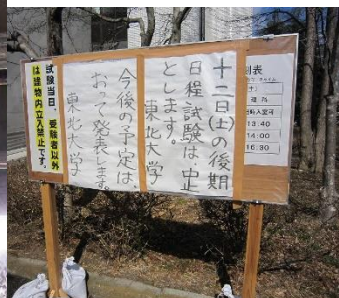 表
13:40
14:00
16:30
十二日(土)の後期
日程試験は、中止
とします。
東北大学
今後の予定は、
おって発表します。
東北大学
試験当日、受験者以外
は建物内立入禁止です。